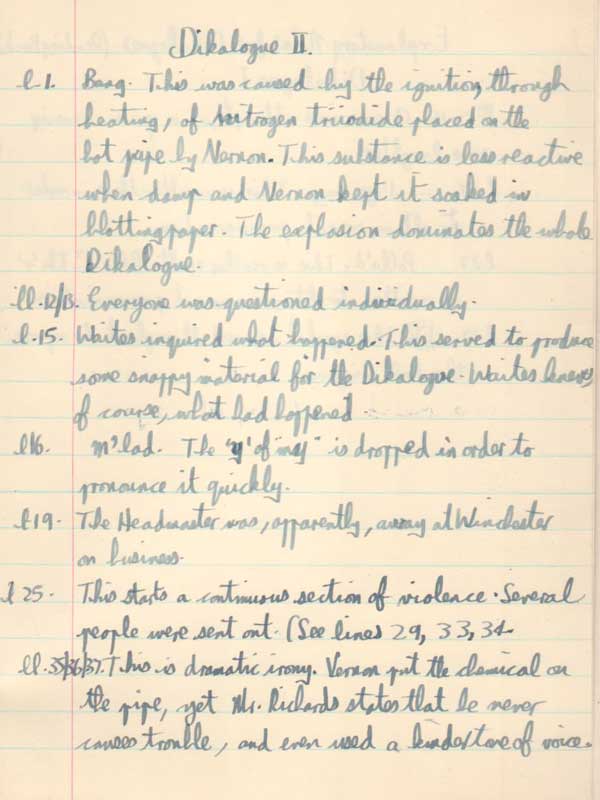 Dikalogue II.
l.1. Bang. This was caused by the ignition, through
heating, of nitrogen triiodide placed on the
hot pipe by Vernon. This substance is less reactive
when damp and Vernon kept it soaked in
blotting paper. The explosion dominates the whole
Dikalogue.
ll.12/13. Everyone was questioned individually.
l.15. Waites inquired what happened. This served to produce
some snappy material for the Dikalogue. Waites knew,
of course, what had happened
l16. m'lad. The "y" of "my" is dropped in order to
pronounce it quickly.
l19. The Headmaster was, apparently, away at Winchester
on business.
l 25. This starts a continuous section of violence. Several
people were sent out. (See lines 29, 33, 34
ll.35/36/37. This is dramatic irony. Vernon put the chemical on
the pipe, yet Mr. Richards states that he never
causes trouble, and even used a kinder tone of voice.